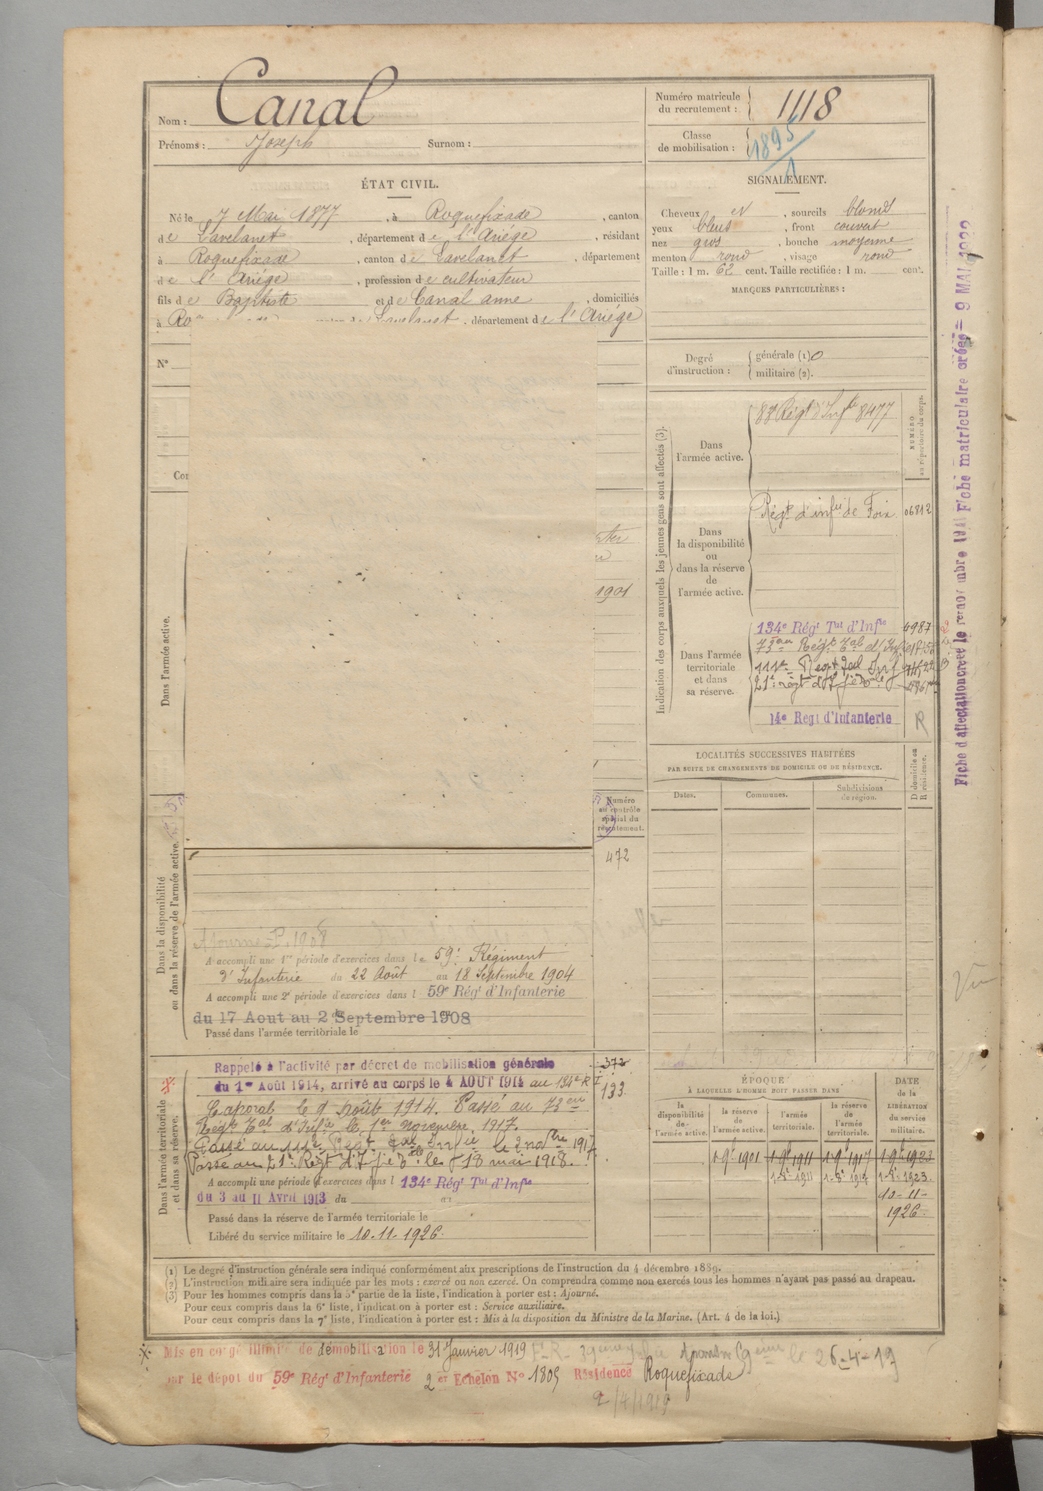 Nom : Canal
Prénoms : Joseph Surnom :
Numéro matricule
du recrutement : 1118
Classe
de mobilisation : 1895/1
ÉTAT CIVIL.
Né le 7 Mai 1877, à Roquefixade, canton
de Lavelanet, département de l'Ariége, résidant
à Roquefixade, canton de Lavelanet, département
de l'Ariége, profession de cultivateur
fils de Baptiste et de Canal anne, domiciliés
à Lavelanet, département de l'Ariége
SIGNALEMENT.
Cheveux et, sourcils blonds
yeux bleus, front couvert
nez gros, bouche moyenne
menton rond, visage rond
Taille : 1 m. 62 cent. Taille rectifiée : 1 m. cent.
MARQUES PARTICULIÈRES :
N°
Degré
d'instruction : générale (1) 0
militaire (2).
Indication des corps auxquels les jeunes gens sont affectés (3).
Dans
l'armée active.
83e Régt d'Infie 8477
NUMÉRO
au répertoire du corps.
Dans
la disponibilité
ou
dans la réserve
de
l'armée active.
Régt d'infie de Foix 06812
1901
Dans l'armée
territoriale
et dans
sa réserve.
134e Régt Tal d'Infie 4987
73eme Régt Tal d'Infie
111e Régt Tal Inf
21e régt d'If
14e Regt d'Infanterie R
Dans l'armée active.
LOCALITÉS SUCCESSIVES HABITÉES
PAR SUITE DE CHANGEMENTS DE DOMICILE OU DE RÉSIDENCE.
Dates. Communes. Subdivisions
de région.
D domicile ou
R résidence.
Numéro
au contrôle
spécial du
recrutement.
472
Dans la disponibilité
ou dans la réserve de l'armée active.
Ajourné 1908
A accompli une 1re période d'exercices dans le 59e Régiment
d'Infanterie du 22 Août au 18 Septembre 1904
A accompli une 2e période d'exercices dans l 59e Régt d'Infanterie
du 17 Aout au 2 Septembre 1908
Passé dans l'armée territoriale le
Dans l'armée territoriale
et dans sa réserve.
Rappelé à l'activité par décret de mobilisation générale 372
du 1er Août 1914, arrivé au corps le 4 AOUT 1914 au 134e R I 133
Caporal le 9 Août 1914. Passé au 73eme
Régt Tal d'Infie le 1er novembre 1917.
Passé au 111e Régt Tal Infie le 2 nobre 1917
Passé au 21e Régt d'If le 18 mai 1918.
A accompli une période d'exercices dans l 134e Régt Tal d'Infie
du 3 au 11 Avril 1913 du au
Passé dans la réserve de l'armée territoriale le
Libéré du service militaire le 10-11-1926.
ÉPOQUE
À LAQUELLE L'HOMME DOIT PASSER DANS
DATE
DE LA
LIBÉRATION
du service
militaire.
la
disponibilité
de
l'armée active.
la réserve
de
l'armée active.
l'armée
territoriale.
la réserve
de
l'armée
territoriale.
1 9e 1901 1 9e 1911 1 9e 1917 1 9e 1923
1923
10-11-
1926
(1) Le degré d'instruction générale sera indiqué conformément aux prescriptions de l'instruction du 4 décembre 1889.
(2) L'instruction militaire sera indiquée par les mots : exercé ou non exercé. On comprendra comme non exercés tous les hommes n'ayant pas passé au drapeau.
(3) Pour les hommes compris dans la 5e partie de la liste, l'indication à porter est : Ajourné.
Pour ceux compris dans la 6e liste, l'indication à porter est : Service auxiliaire.
Pour ceux compris dans la 7e liste, l'indication à porter est : Mis à la disposition du Ministre de la Marine. (Art. 4 de la loi.)
Mis en congé illimité de démobilisation le 31 Janvier 1919 le 26-4-19
par le dépot du 59e Rég't d'Infanterie 2er Echelon N° 1809 Résidence Roquefixade
2/4/1919
Fiche matriculaire créée = 9 MAI 1922